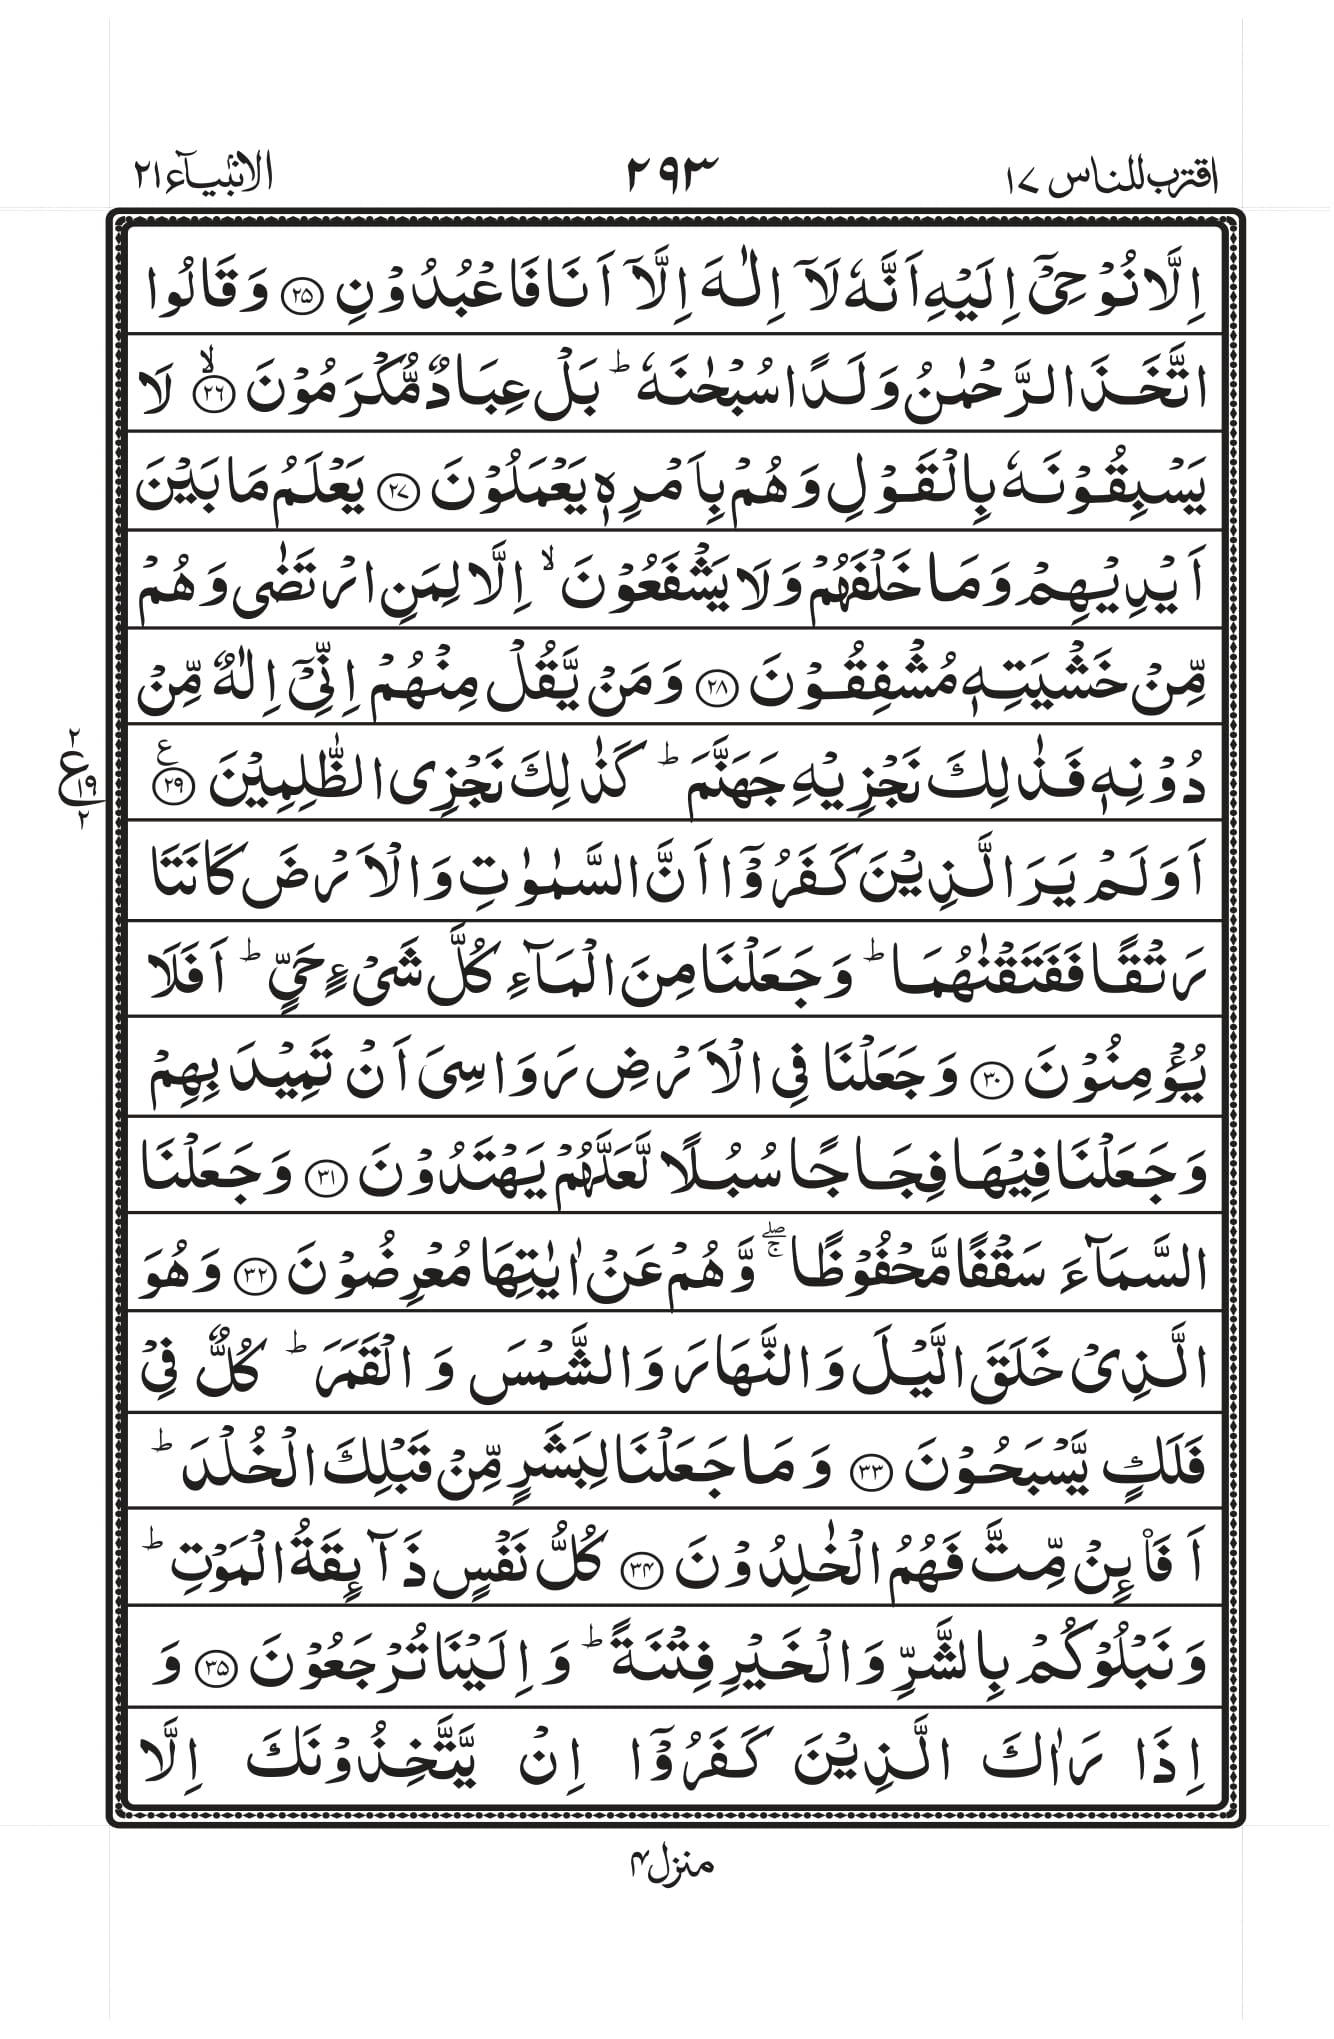 اقترب للناس ١٧
٢٩٣
الانبیآء ٢١
اِلَّا نُوْحِیْۤ اِلَیْهِ اَنَّهٗ لَاۤ اِلٰهَ اِلَّاۤ اَنَا فَاعْبُدُوْنِ ﴿۲۵﴾ وَ قَالُوا
اتَّخَذَ الرَّحْمٰنُ وَلَدًا سُبْحٰنَهٗ ؕ بَلْ عِبَادٌ مُّكْرَمُوْنَ ﴿ۙ۲۶﴾ لَا
یَسْبِقُوْنَهٗ بِالْقَوْلِ وَ هُمْ بِاَمْرِهٖ یَعْمَلُوْنَ ﴿۲۷﴾ یَعْلَمُ مَا بَیْنَ
اَیْدِیْهِمْ وَ مَا خَلْفَهُمْ وَ لَا یَشْفَعُوْنَ ۙ اِلَّا لِمَنِ ارْتَضٰی وَ هُمْ
مِّنْ خَشْیَتِهٖ مُشْفِقُوْنَ ﴿۲۸﴾ وَ مَنْ یَّقُلْ مِنْهُمْ اِنِّیْۤ اِلٰهٌ مِّنْ
دُوْنِهٖ فَذٰلِكَ نَجْزِیْهِ جَهَنَّمَ ؕ كَذٰلِكَ نَجْزِی الظّٰلِمِیْنَ ﴿۲۹﴾ ع
٢ ع ١٩ ٢
اَوَ لَمْ یَرَ الَّذِیْنَ كَفَرُوْۤا اَنَّ السَّمٰوٰتِ وَ الْاَرْضَ كَانَتَا
رَتْقًا فَفَتَقْنٰهُمَا ؕ وَ جَعَلْنَا مِنَ الْمَآءِ كُلَّ شَیْءٍ حَیٍّ ؕ اَفَلَا
یُؤْمِنُوْنَ ﴿۳۰﴾ وَ جَعَلْنَا فِی الْاَرْضِ رَوَاسِیَ اَنْ تَمِیْدَ بِهِمْ
وَ جَعَلْنَا فِیْهَا فِجَاجًا سُبُلًا لَّعَلَّهُمْ یَهْتَدُوْنَ ﴿۳۱﴾ وَ جَعَلْنَا
السَّمَآءَ سَقْفًا مَّحْفُوْظًا ۚۖ وَّ هُمْ عَنْ اٰیٰتِهَا مُعْرِضُوْنَ ﴿۳۲﴾ وَ هُوَ
الَّذِیْ خَلَقَ الَّیْلَ وَ النَّهَارَ وَ الشَّمْسَ وَ الْقَمَرَ ؕ كُلٌّ فِیْ
فَلَكٍ یَّسْبَحُوْنَ ﴿۳۳﴾ وَ مَا جَعَلْنَا لِبَشَرٍ مِّنْ قَبْلِكَ الْخُلْدَ ؕ
اَفَا۠ئِنْ مِّتَّ فَهُمُ الْخٰلِدُوْنَ ﴿۳۴﴾ كُلُّ نَفْسٍ ذَآئِقَةُ الْمَوْتِ ؕ
وَ نَبْلُوْكُمْ بِالشَّرِّ وَ الْخَیْرِ فِتْنَةً ؕ وَ اِلَیْنَا تُرْجَعُوْنَ ﴿۳۵﴾ وَ
اِذَا رَاٰكَ الَّذِیْنَ كَفَرُوْۤا اِنْ یَّتَّخِذُوْنَكَ اِلَّا
منزل ۴